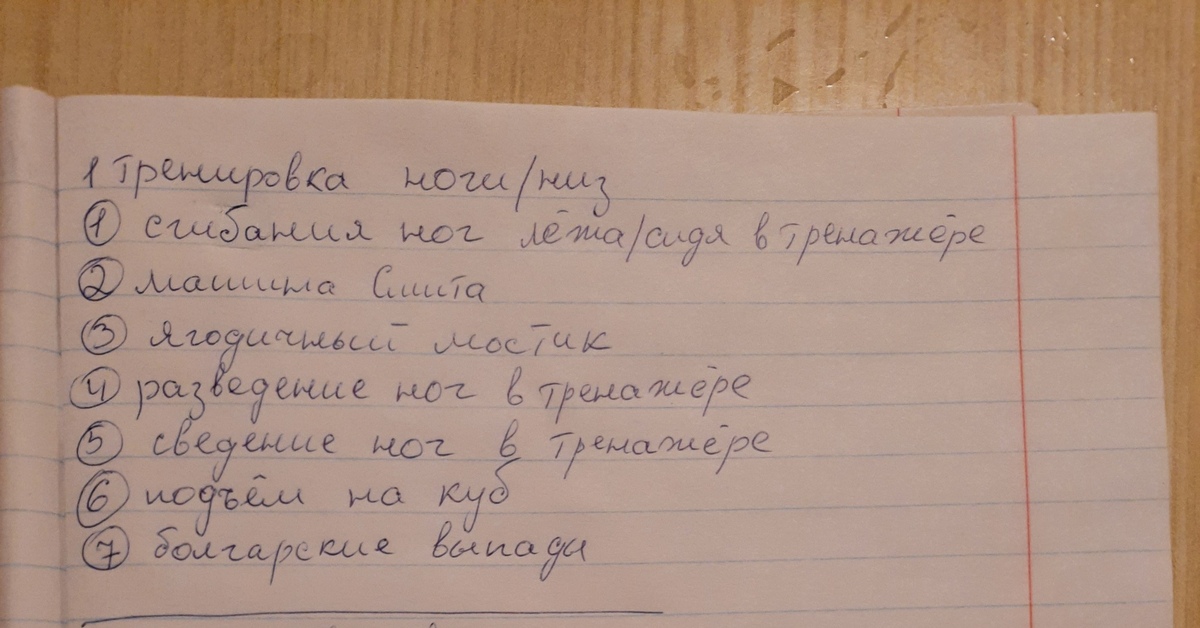 1 тренировка ноги/низ
1 сгибания ног лёжа/сидя в тренажёре
2 машина Смита
3 ягодичный мостик
4 разведение ног в тренажёре
5 сведение ног в тренажёре
6 подъём на куб
7 болгарские выпады